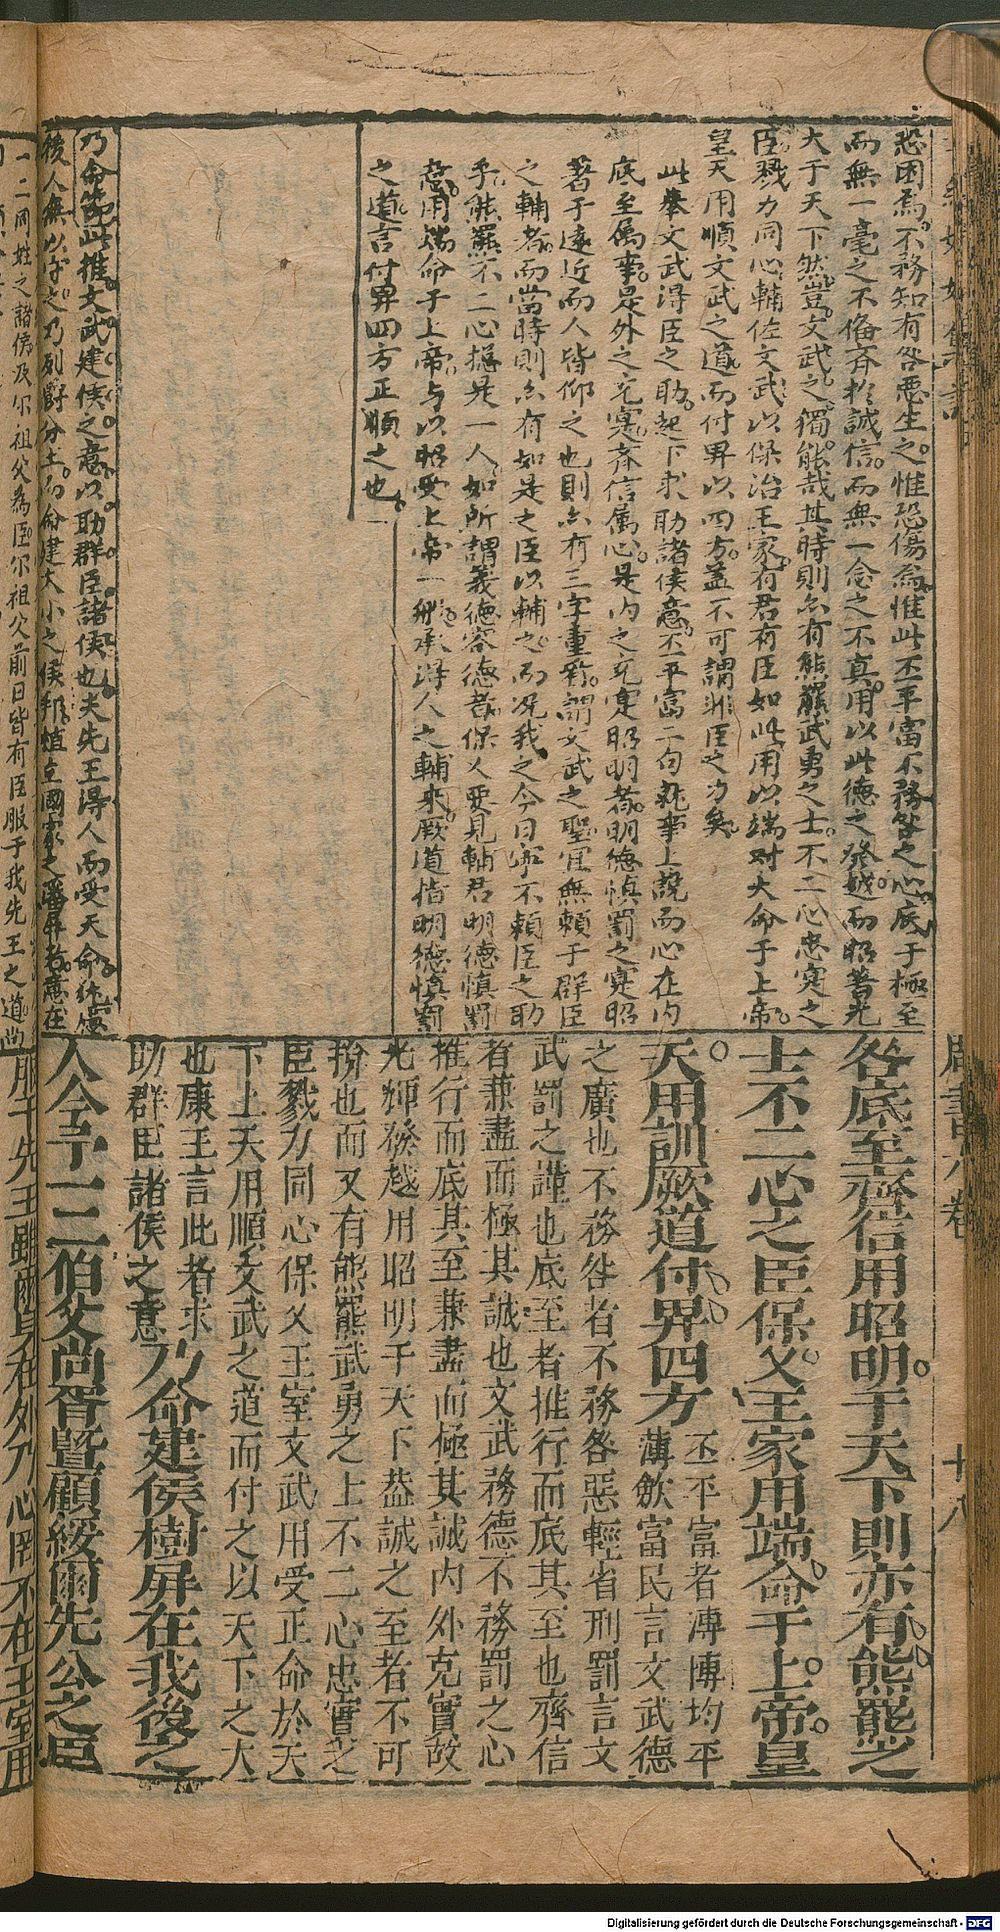 恐困焉不務知有咎惡生之惟恐傷焉惟此丕平富不務咎之心底于極至
而無一毫之不脩齊於誠信而無一念之不真用以此德之發越而昭著光
大于天下然豈文武之獨能哉其時則亦有熊羆武勇之士不二心忠寔之
臣戮力同心輔佐文武以保治王家有君有臣如此用以端对大命于上帝
皇天用順文武之道而付畀以四方蓋不可謂非臣之力矣
此舉文武得臣之助起下求助諸侯意丕平富二句就事上說而心在内
底至属事是外之充寔齊信属心是内之充寔昭明者明德慎罰之寔昭
著于遠近而人皆仰之也則亦有三字重看謂文武之聖宜無頼于群臣
之輔者而當時則亦有如是之臣以輔之而况我之今日寧不頼臣之助
乎熊羆不二心摠是一人如所謂義德容德者保乂要見輔君明德慎罰
意用端命于上帝与以昭受上帝一般承得人之輔來厥道指明德慎罰
之道言付畀四方正順之也
乃命節此推文武建侯之意以助群臣諸侯也夫先王得人而受天命
後人無以守之乃列爵分土而命建大小之侯邦植立國家之藩屏者意在
周書六卷
十八
咎底至齊信用昭明于天下則亦有熊羆之
士不二心之臣保乂王家用端命于上帝皇
天用訓厥道付畀四方丕平富者溥博均平
薄歛富民言文武德
之廣也不務咎者不務咎惡輕省刑罰言文
武罰之謹也底至者推行而底其至也齊信
者兼盡而極其誠也文武務德不務罰之心
推行而底其至兼盡而極其誠内外充實故
光輝發越用昭明于天下益誠之至者不可
揜也而又有熊羆武勇之士不二心忠實之
臣戮力同心保乂王室文武用受正命於天
下上天用順文武之道而付之以天下之大
也康王言此者求
助群臣諸侯之意乃命建侯樹屏在我後之
人今予一二伯父尚胥曁顧綏爾先公之臣
一二同姓之諸侯及尔祖父為臣尔祖父前日皆有臣服于我先王之道尚
服于先王雖爾身在外乃心罔不在王室用
Digitalisierung gefördert durch die Deutsche Forschungsgemeinschaft - DFG